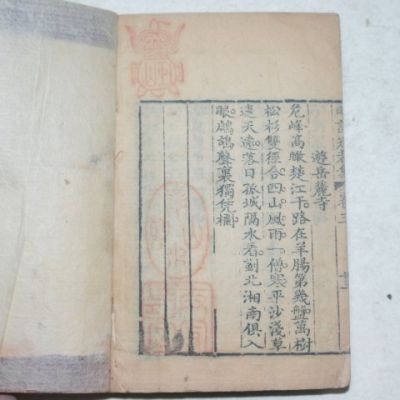 遊岳麓寺
危峰高瞰楚江干路在羊腸第幾盤萬樹
松杉雙徑合四山風雨一僧寒平沙淺草
連天遠落日孤城隔水看薊北湘南俱入
眼鷓鴣聲裏獨凭欄